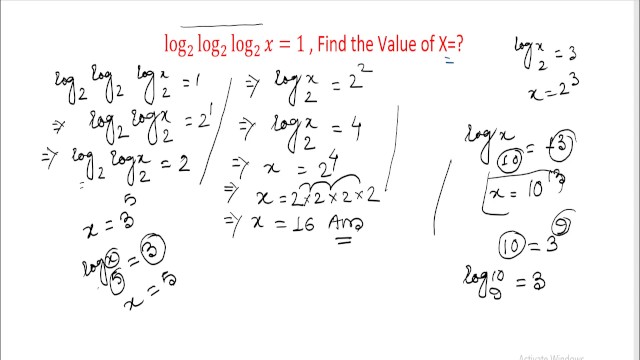 log₂ log₂ log₂ x = 1 , Find the Value of X=?
log₂ log₂ log₂ˣ = 1
⇒ log₂ log₂ˣ = 2¹
⇒ log₂ log₂ˣ = 2
x = 3⁵
log₅ˣ = 3
x = 5
⇒ log₂ˣ = 2²
⇒ log₂ˣ = 4
⇒ x = 2⁴
⇒ x = 2×2×2×2
⇒ x = 16 Ans
log₂ˣ = 3
x = 2³
log₁₀ˣ = 13
x = 10¹³
10 = 3⁹
log₉¹⁰ = 3
Activate Windows